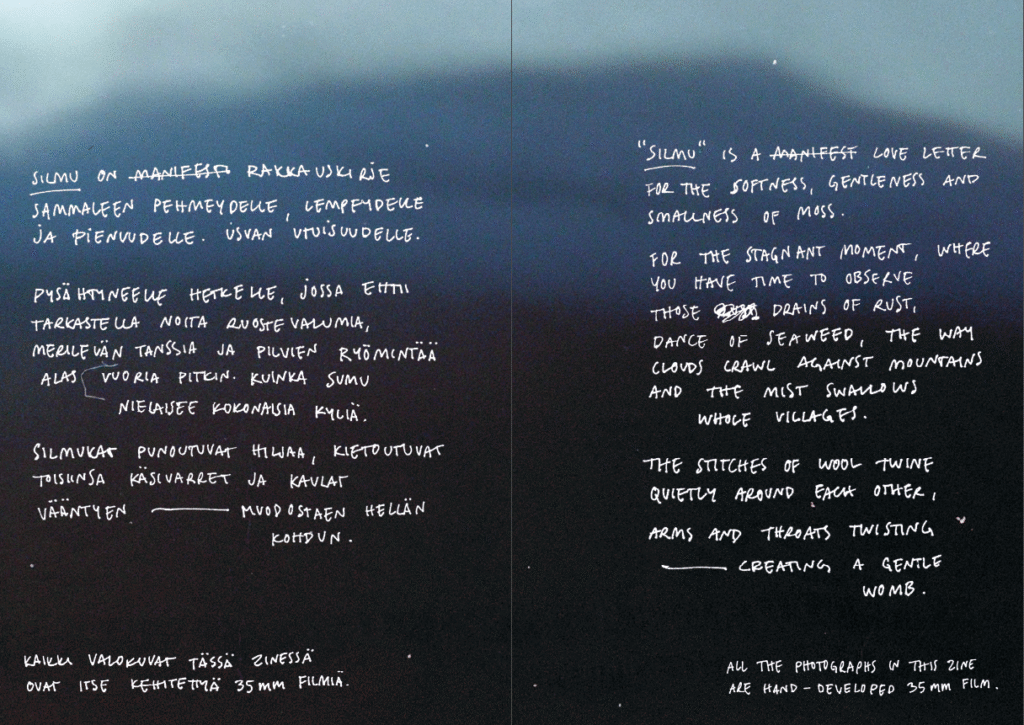 SILMU ON MANIFESTI RAKKAUSKIRJE
SAMMALEEN PEHMEYDELLE, LEMPEYDELLE
JA PIENUUDELLE. USVAN UTUISUUDELLE.
PYSÄHTYNEELLE HETKELLE, JOSSA EHTII
TARKASTELLA NOITA RUOSTEVALUMIA,
MERILEVÄN TANSSIA JA PILVIEN RYÖMINTÄÄ
ALAS VUORIA PITKIN. KUINKA SUMU
NIELAISEE KOKONAISIA KYLIÄ.
SILMUKAT PUNOUTUVAT HILJAA, KIETOUTUVAT
TOISIINSA KÄSIVARRET JA KAULAT
VÄÄNTYEN — MUODOSTAEN HELLÄN
KOHDUN.
KAIKKI VALOKUVAT TÄSSÄ ZINESSÄ
OVAT ITSE KEHITETTYÄ 35MM FILMIÄ.
"SILMU" IS A MANIFEST LOVE LETTER
FOR THE SOFTNESS, GENTLENESS AND
SMALLNESS OF MOSS.
FOR THE STAGNANT MOMENT, WHERE
YOU HAVE TIME TO OBSERVE
THOSE DRAINS OF RUST,
DANCE OF SEAWEED, THE WAY
CLOUDS CRAWL AGAINST MOUNTAINS
AND THE MIST SWALLOWS
WHOLE VILLAGES.
THE STITCHES OF WOOL TWINE
QUIETLY AROUND EACH OTHER,
ARMS AND THROATS TWISTING
— CREATING A GENTLE
WOMB.
ALL THE PHOTOGRAPHS IN THIS ZINE
ARE HAND-DEVELOPED 35MM FILM.